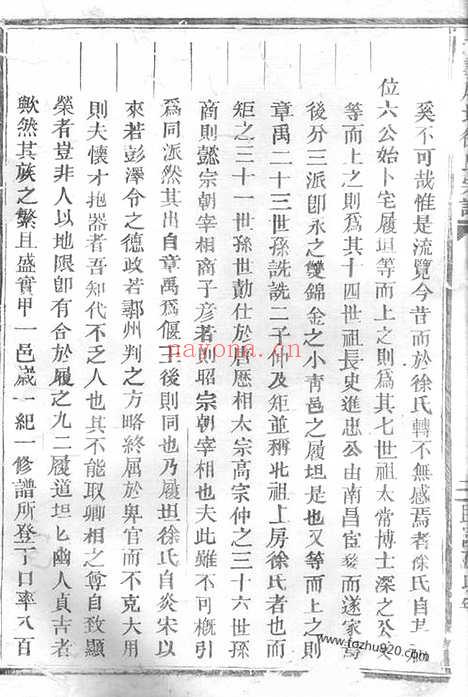 奚不可哉惟是流覽今昔而於徐氏轉不無感焉者徐氏自其
位六公始卜宅履坦等而上之則爲其七世祖太常博士深之公又
等而上之則爲其十四世祖長史進忠公由南昌宦婺而遂家焉
後分三派卽永之雙錦金之小青邑之履坦是也又等而上之則
章禹二十三世孫詵詵二子仲及矩並稱北祖上房徐氏者也而
矩之三十一世孫世勣仕於唐歷相太宗高宗仲之三十六世孫
商則懿宗朝宰相商子彥若則昭宗朝宰相也夫此雖不可槪引
爲同派然其出自章禹爲偃王後則同也乃履坦徐氏自炎宋以
來若彭澤令之德政若鄿州判之方略終屈於卑官而不克大用
則夫懷才抱器者吾知代不乏人也其不能取卿相之尊自致顯
榮者豈非人以地限卽有合於履之九二履道坦七幽人貞吉者
歟然其族之繁且盛實甲一邑歲一紀一修譜所登丁口率八百
nayona.cn
www.tezhu920.com